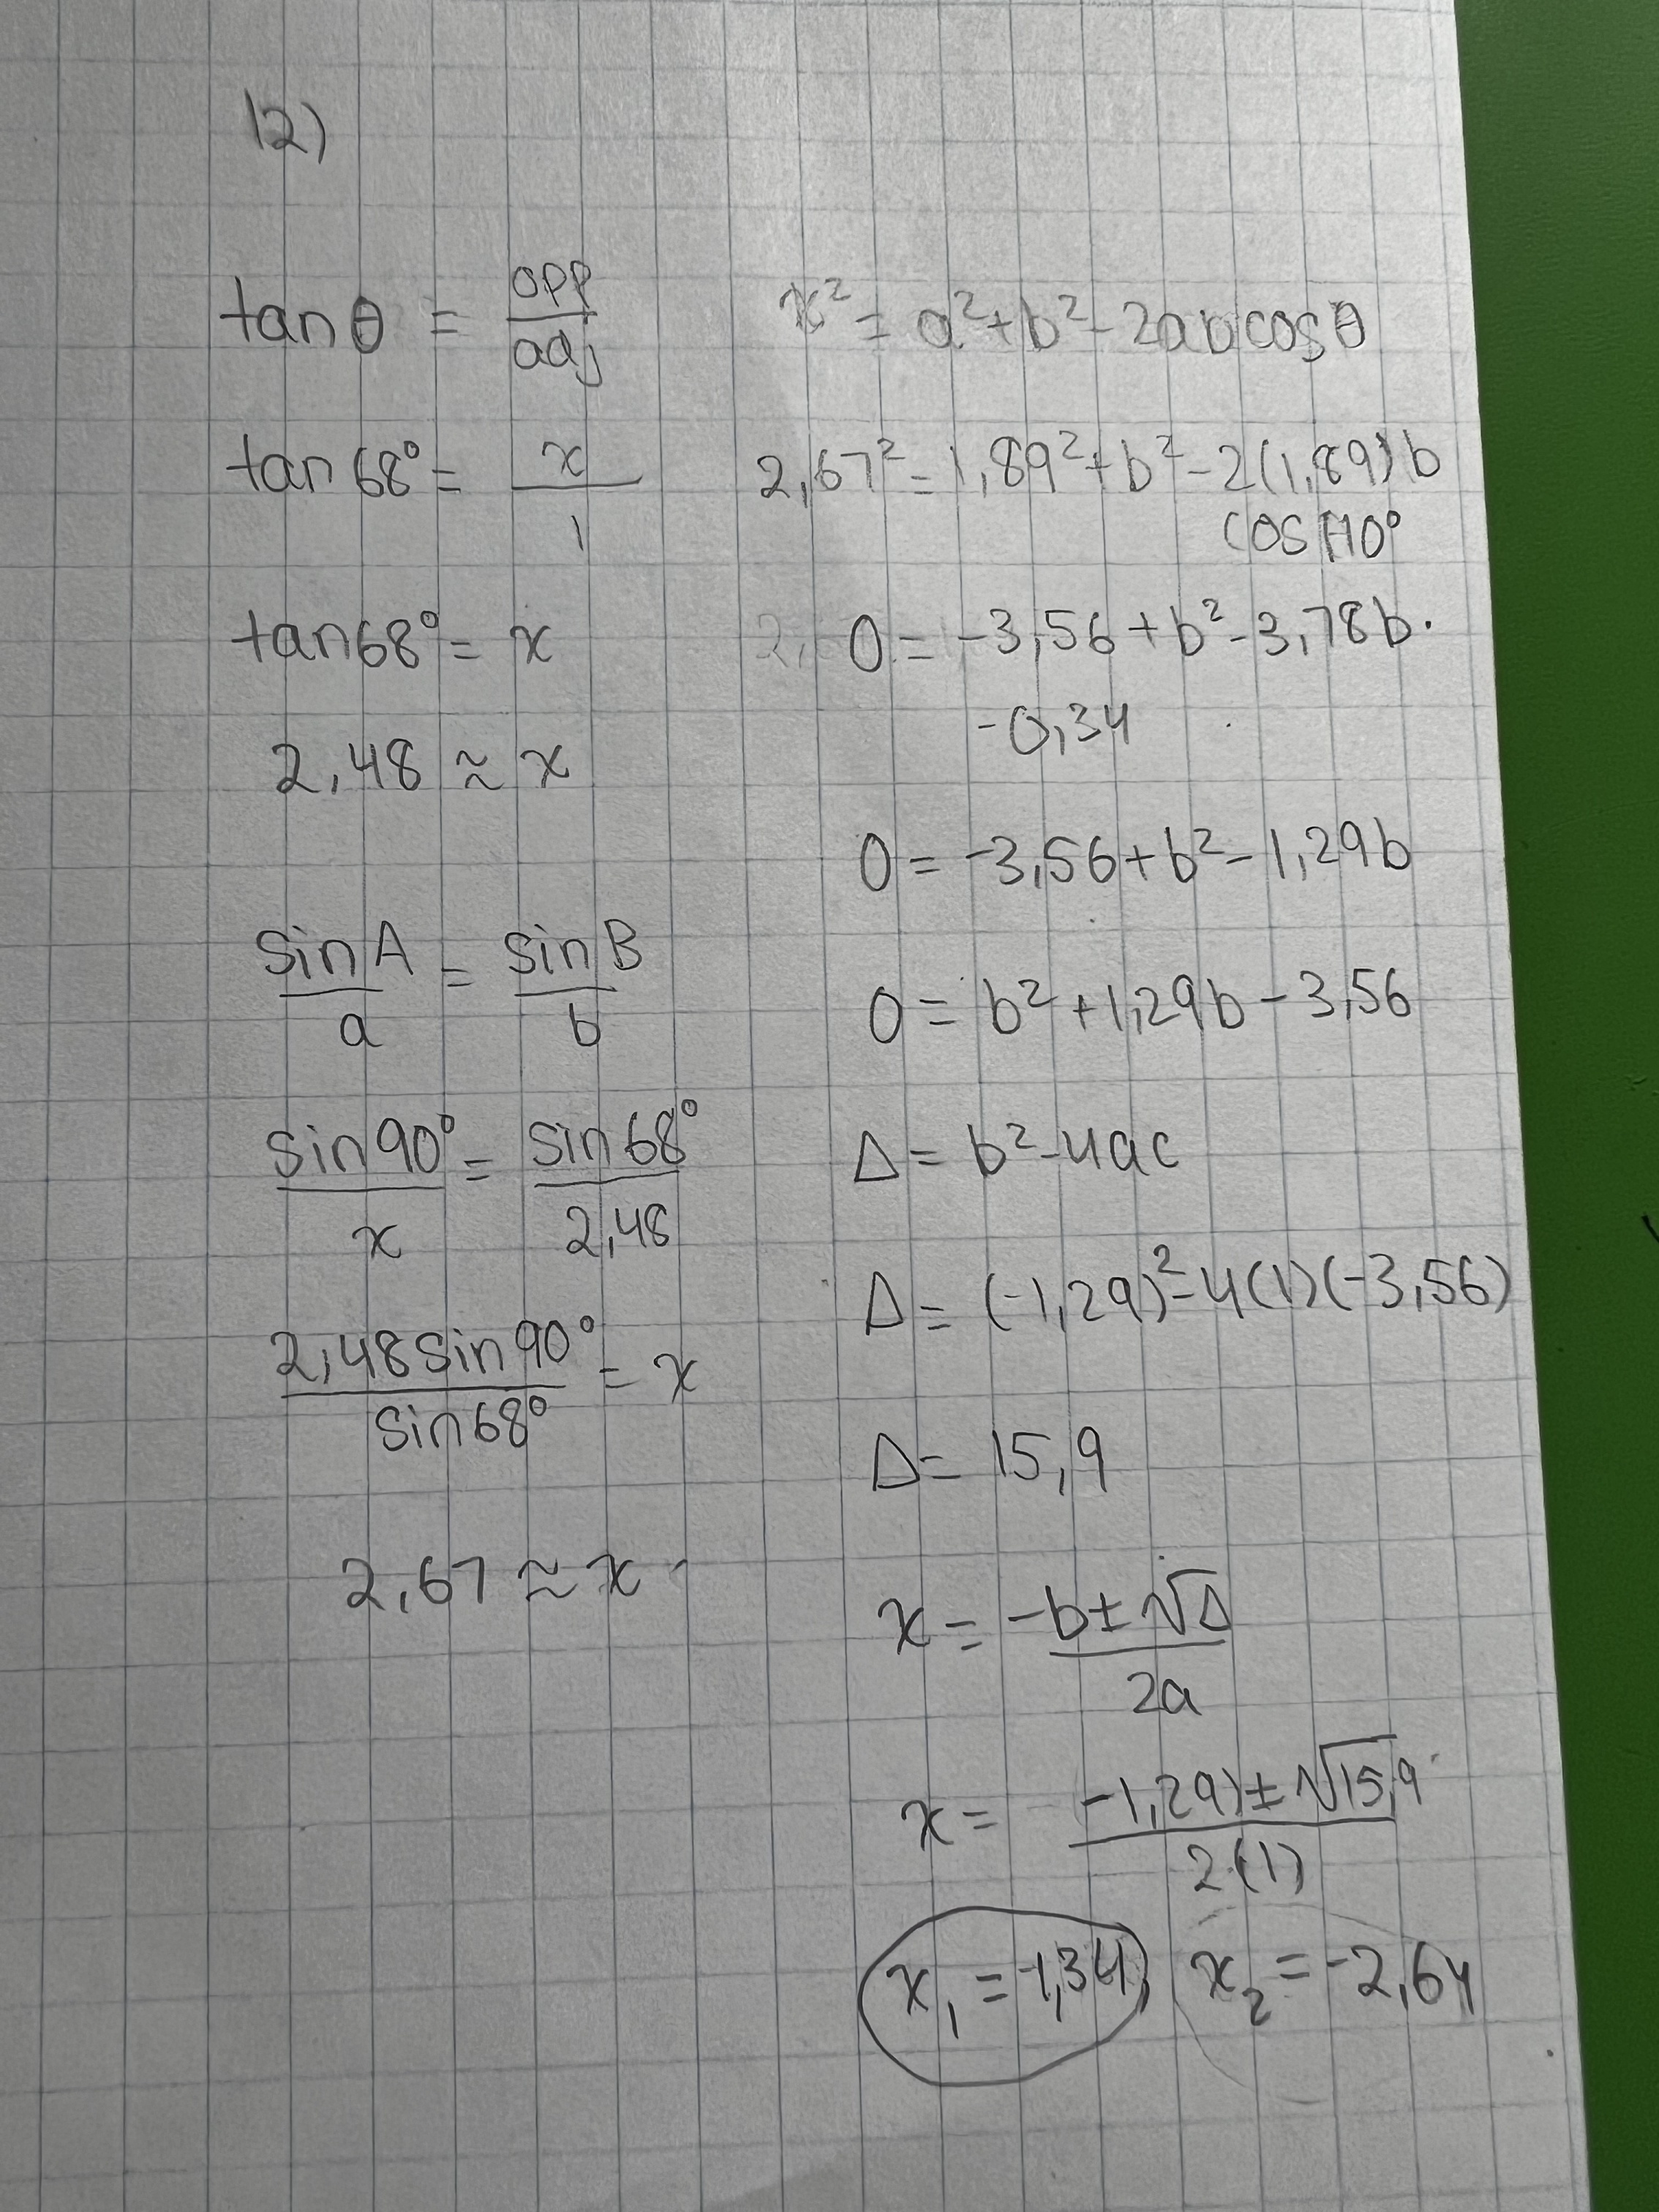 12)
tan θ = opp/adj
tan 68° = x/1
tan 68° = x
2,48 ≈ x
sin A/a = sin B/b
sin 90°/x = sin 68°/2,48
2,48 sin 90°/sin 68° = x
2,67 ≈ x
x² = a² + b² - 2ab cos θ
2,67² = 1,89² + b² - 2(1,89)b
cos 110°
0 = -3,56 + b² - 3,78b ·
-0,34
0 = -3,56 + b² - 1,29b
0 = b² + 1,29b - 3,56
Δ = b² - 4ac
Δ = (-1,29)² - 4(1)(-3,56)
Δ = 15,9
x = -b ± √Δ/2a
x = -1,29) ± √15,9/2(1)
x₁ = 1,34, x₂ = -2,64